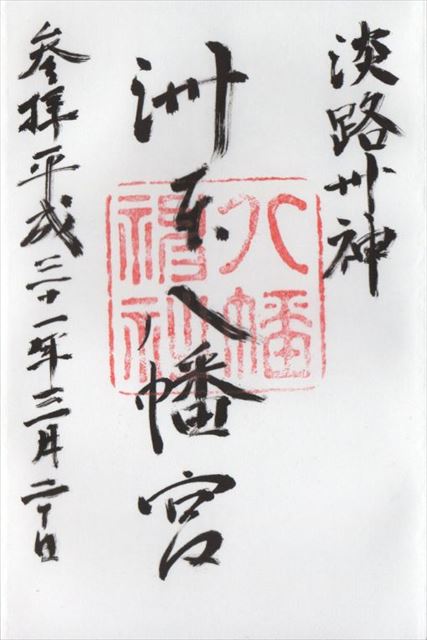 淡路州神
洲本八幡宮
八幡
神社
参拝平成三十一年三月二十日